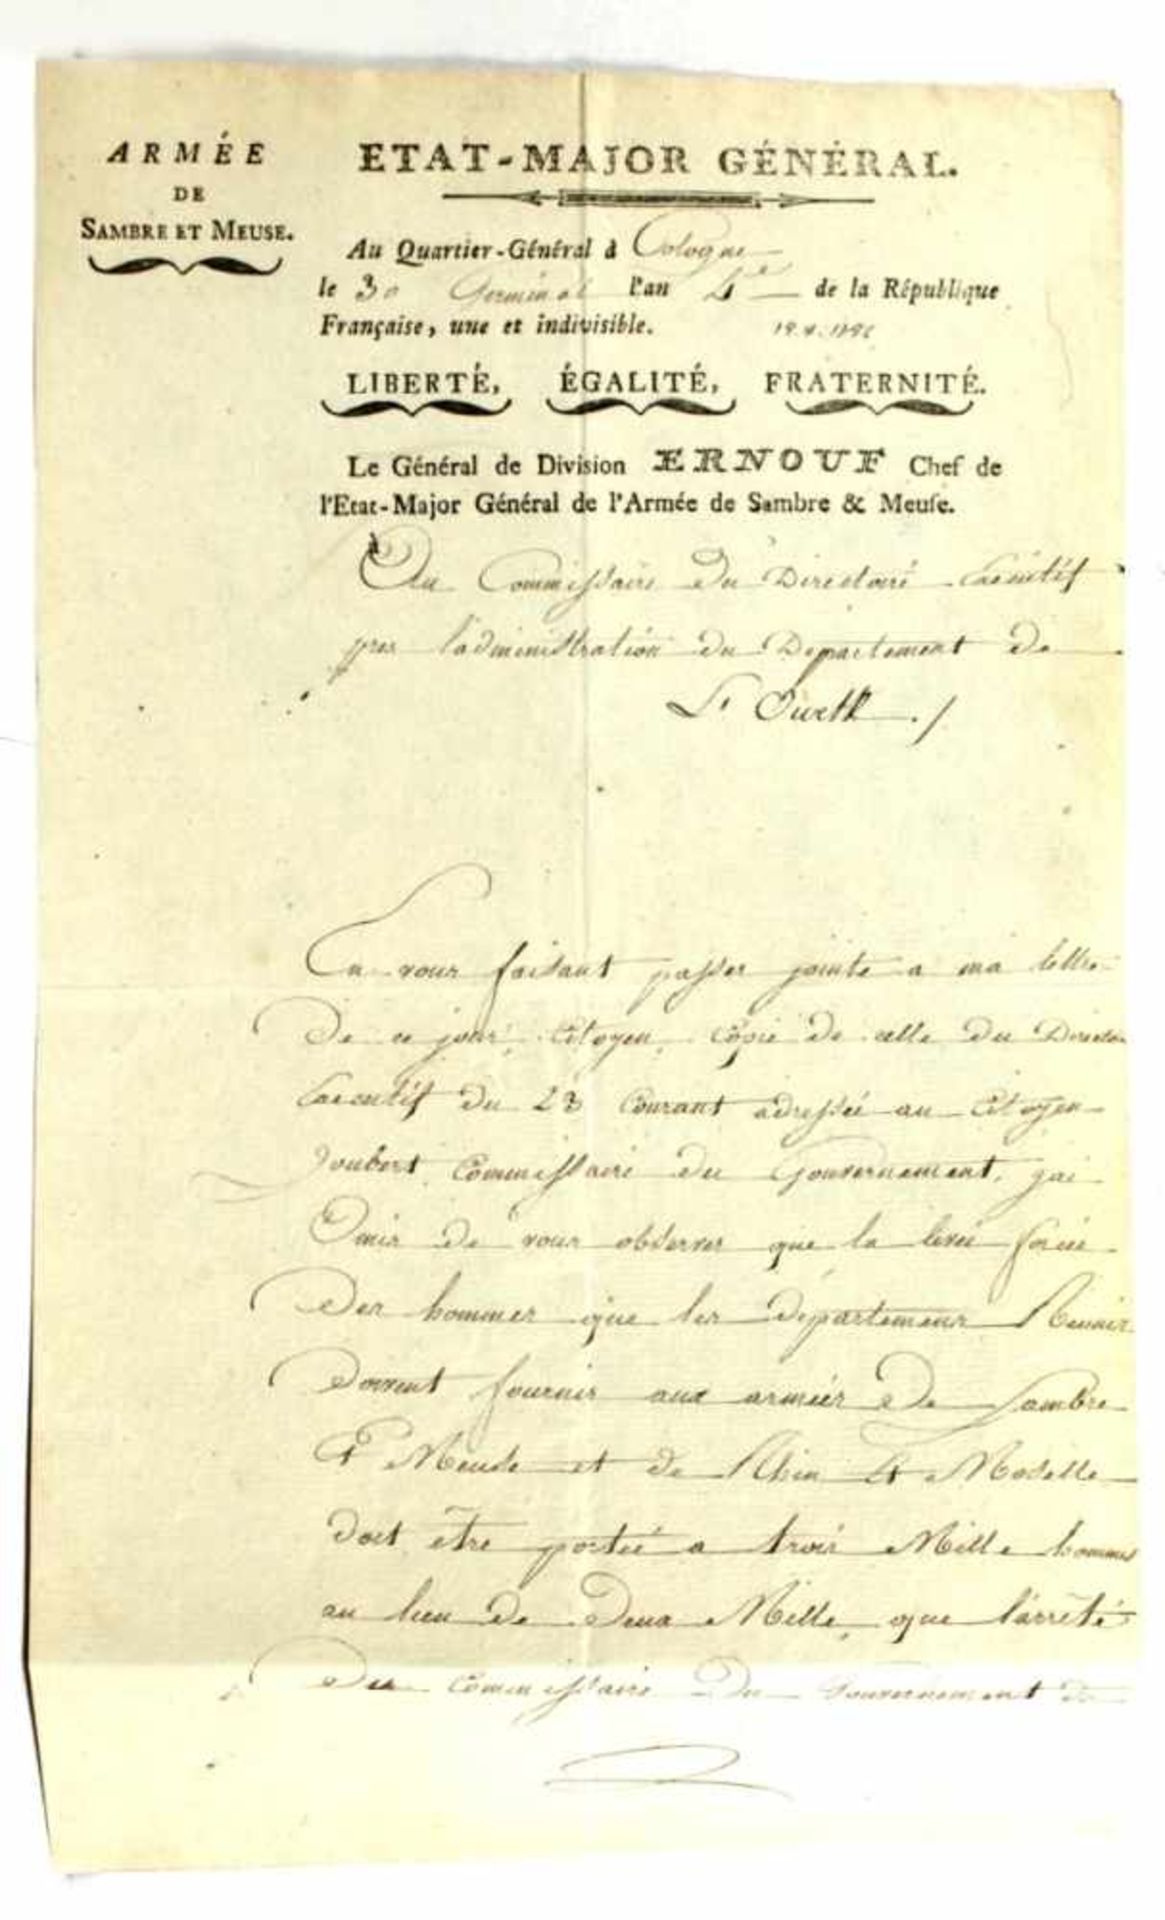 ARMÉE
DE
SAMBRE ET MEUSE.
ETAT-MAJOR GÉNÉRAL.
Au Quartier-Général à Cologne
le 30 Germinal l'an 4e de la République
Française, une et indivisible.
19.4.1796
LIBERTÉ, ÉGALITÉ, FRATERNITÉ.
Le Général de Division ERNOUF Chef de
l'Etat-Major Général de l'Armée de Sambre & Meuse.
Au Commissaire du Directoire Executif
pres l'administration du Departement de
L' Ourthe ./
En vous faisant passer jointe a ma lettre
De ce jour, Citoyen, copie de celle du Directoire
Executif du 23 Courant adressée au Citoyen
Joubert Commissaire du Gouvernement, jai
Omis de vous observer que la levée forcée
Des hommes que les départemens Reunis
doivent fournir aux armées De Sambre
& Meuse et de Rhin & Moselle
doit être portée a trois Mille hommes
au lieu de Deux Mille, que l'arrêté
Du Commissaire Du Gouvernement